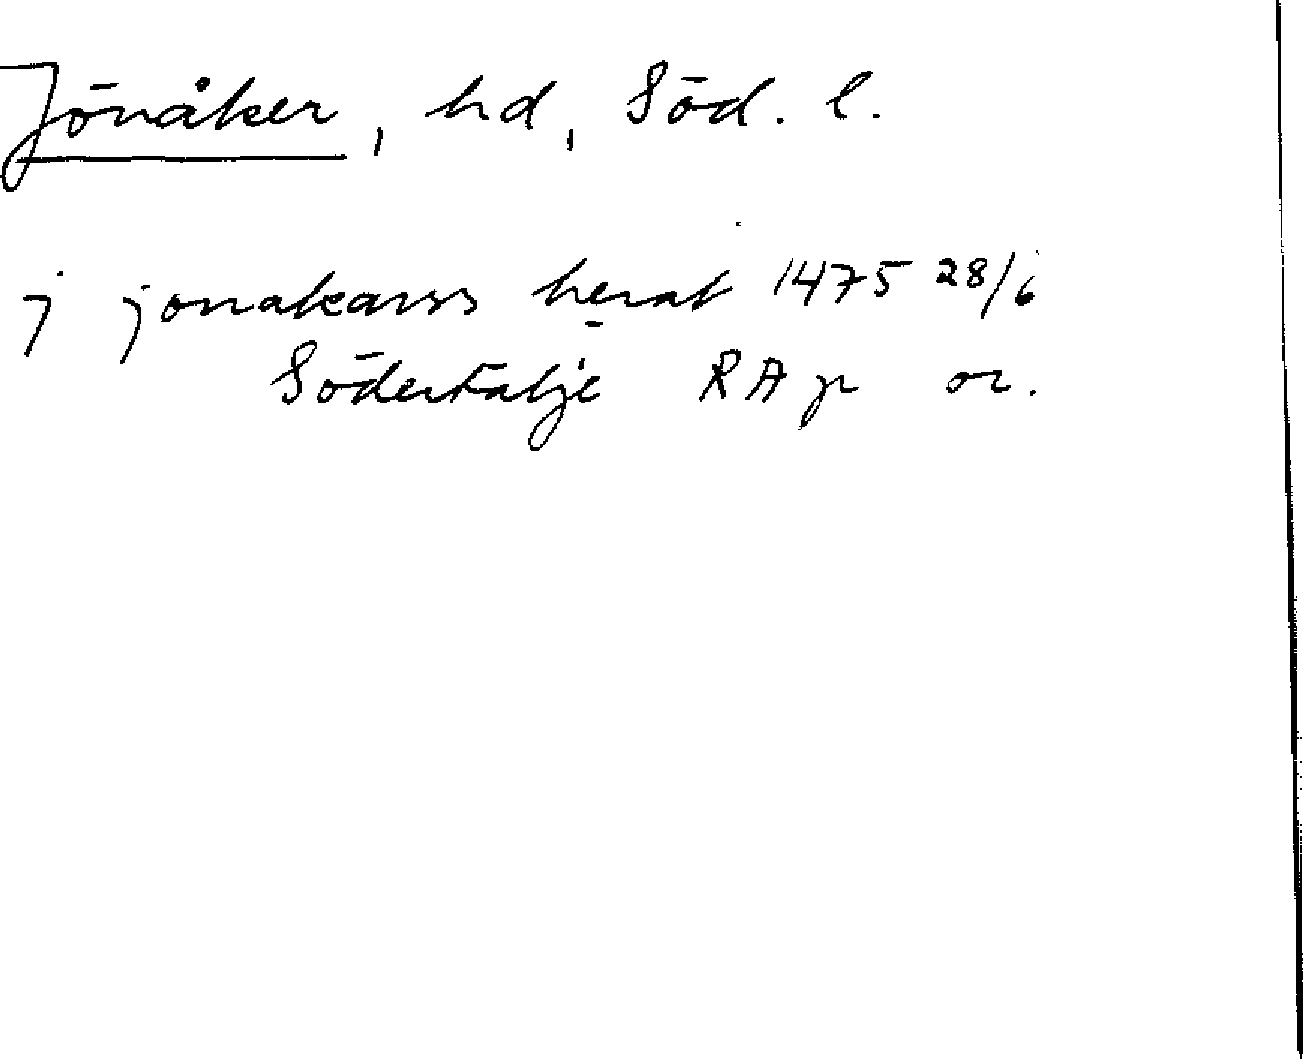 Jönåker, hd, Söd. l.
j jonakarss herat 1475 28/6
Södertälje RAp or.